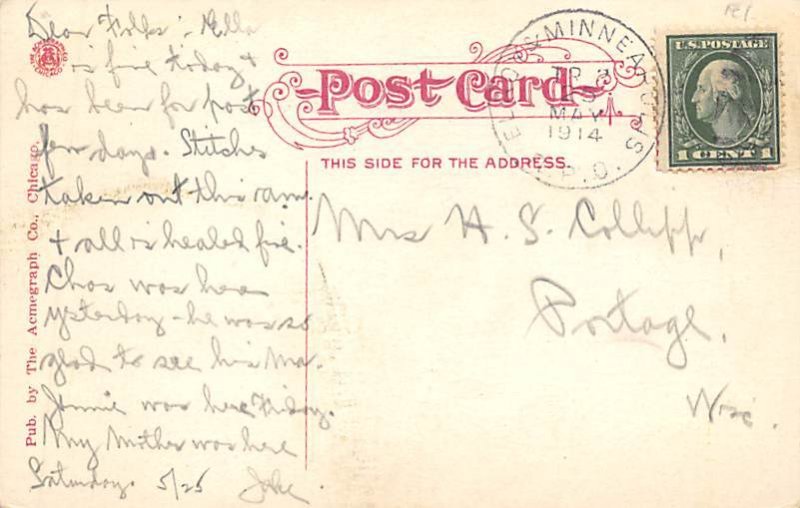 Dear Folks: Ella
is fine today &
has been for past
few days. Stitches
taken out this a.m.
& all is healed fine.
Chas was here
yesterday - he was so
glad to see his Ma.
Jennie was here Friday.
My Mother was here
Saturday. 5/25 Jake
Pub. by The Acmegraph Co., Chicago.
Post Card
THIS SIDE FOR THE ADDRESS.
& MINNEAPOLIS
TR 3
25
MAY
1914
R.P.O.
U.S. POSTAGE
1 CENT 1
Mrs H. S. Collipp,
Portage,
Wis.